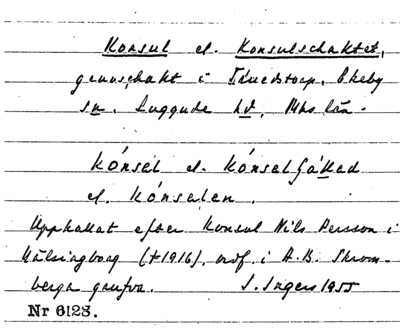 Konsul el. Konsulschaktet,
gruvschakt i Tånedstorp, Ekeby
sn, Luggude hd, Mhs län.
kónsėl el. kónsėlſákėd
el. kónsėlėn.
Uppkallat efter konsul Nils Persson i
Hälsingborg (†1916), ordf. i A.B. Skrom-
berga gruvor. S. Ingers 1955
Nr 6128.